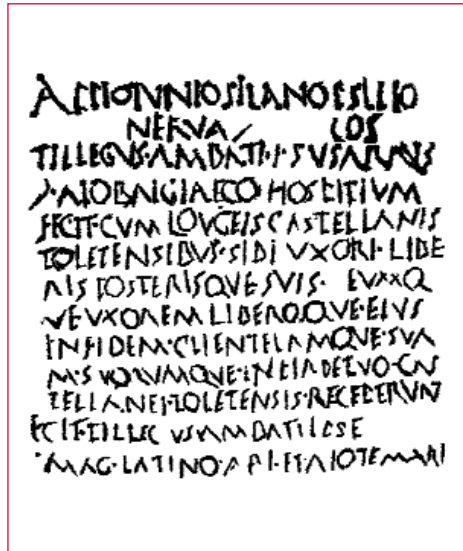 APPIO IVNIO SILANO P SILIO
NERVA COS
TILLEGVS·AMBATI·F·SVSARRVS
Ɔ·AIOBAIGIAECO HOSPITIVM
FECIT·CVM LOVGEIS CASTELLANIS
TOLETENSIBVS·SIBI VXORI·LIBE
RIS POSTERISQVE SVIS· EVMQ
VE VXOREM LIBEROQVE·EIVS
IN FIDEM·CLIENTELAMQVE·SVA
M·SVORVMQVE·IN PERPETVO·CAS
TELLANEI·TOLETENSIS·RECEPERVNT
EGIT·TILLEGVS AMBATI IPSE
MAG·LATINO·ARI·ET AIO TEMARI